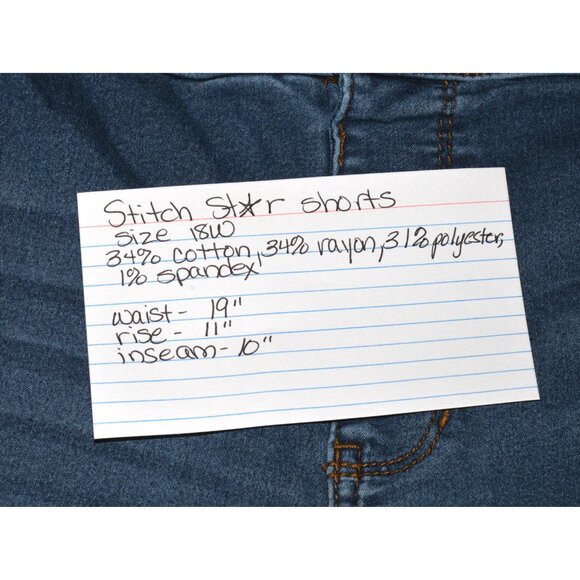 Stitch St★r shorts
size 18W
34% cotton, 34% rayon, 31% polyester,
1% spandex
waist- 19"
rise - 11"
inseam- 10"